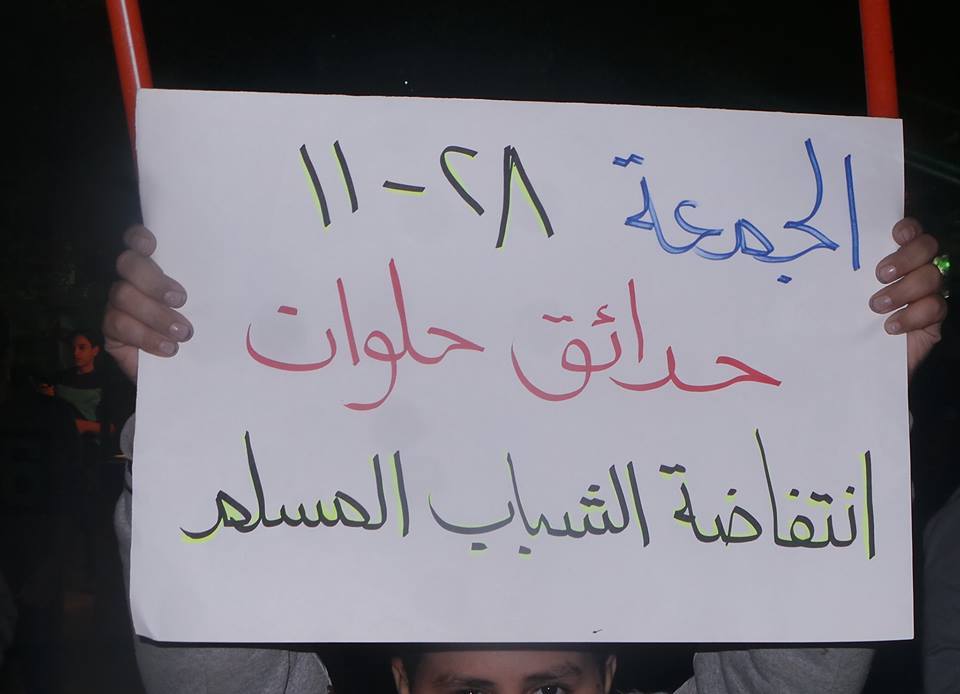 الجمعة ٢٨-١١
حدائق حلوان
انتفاضة الشباب المسلم